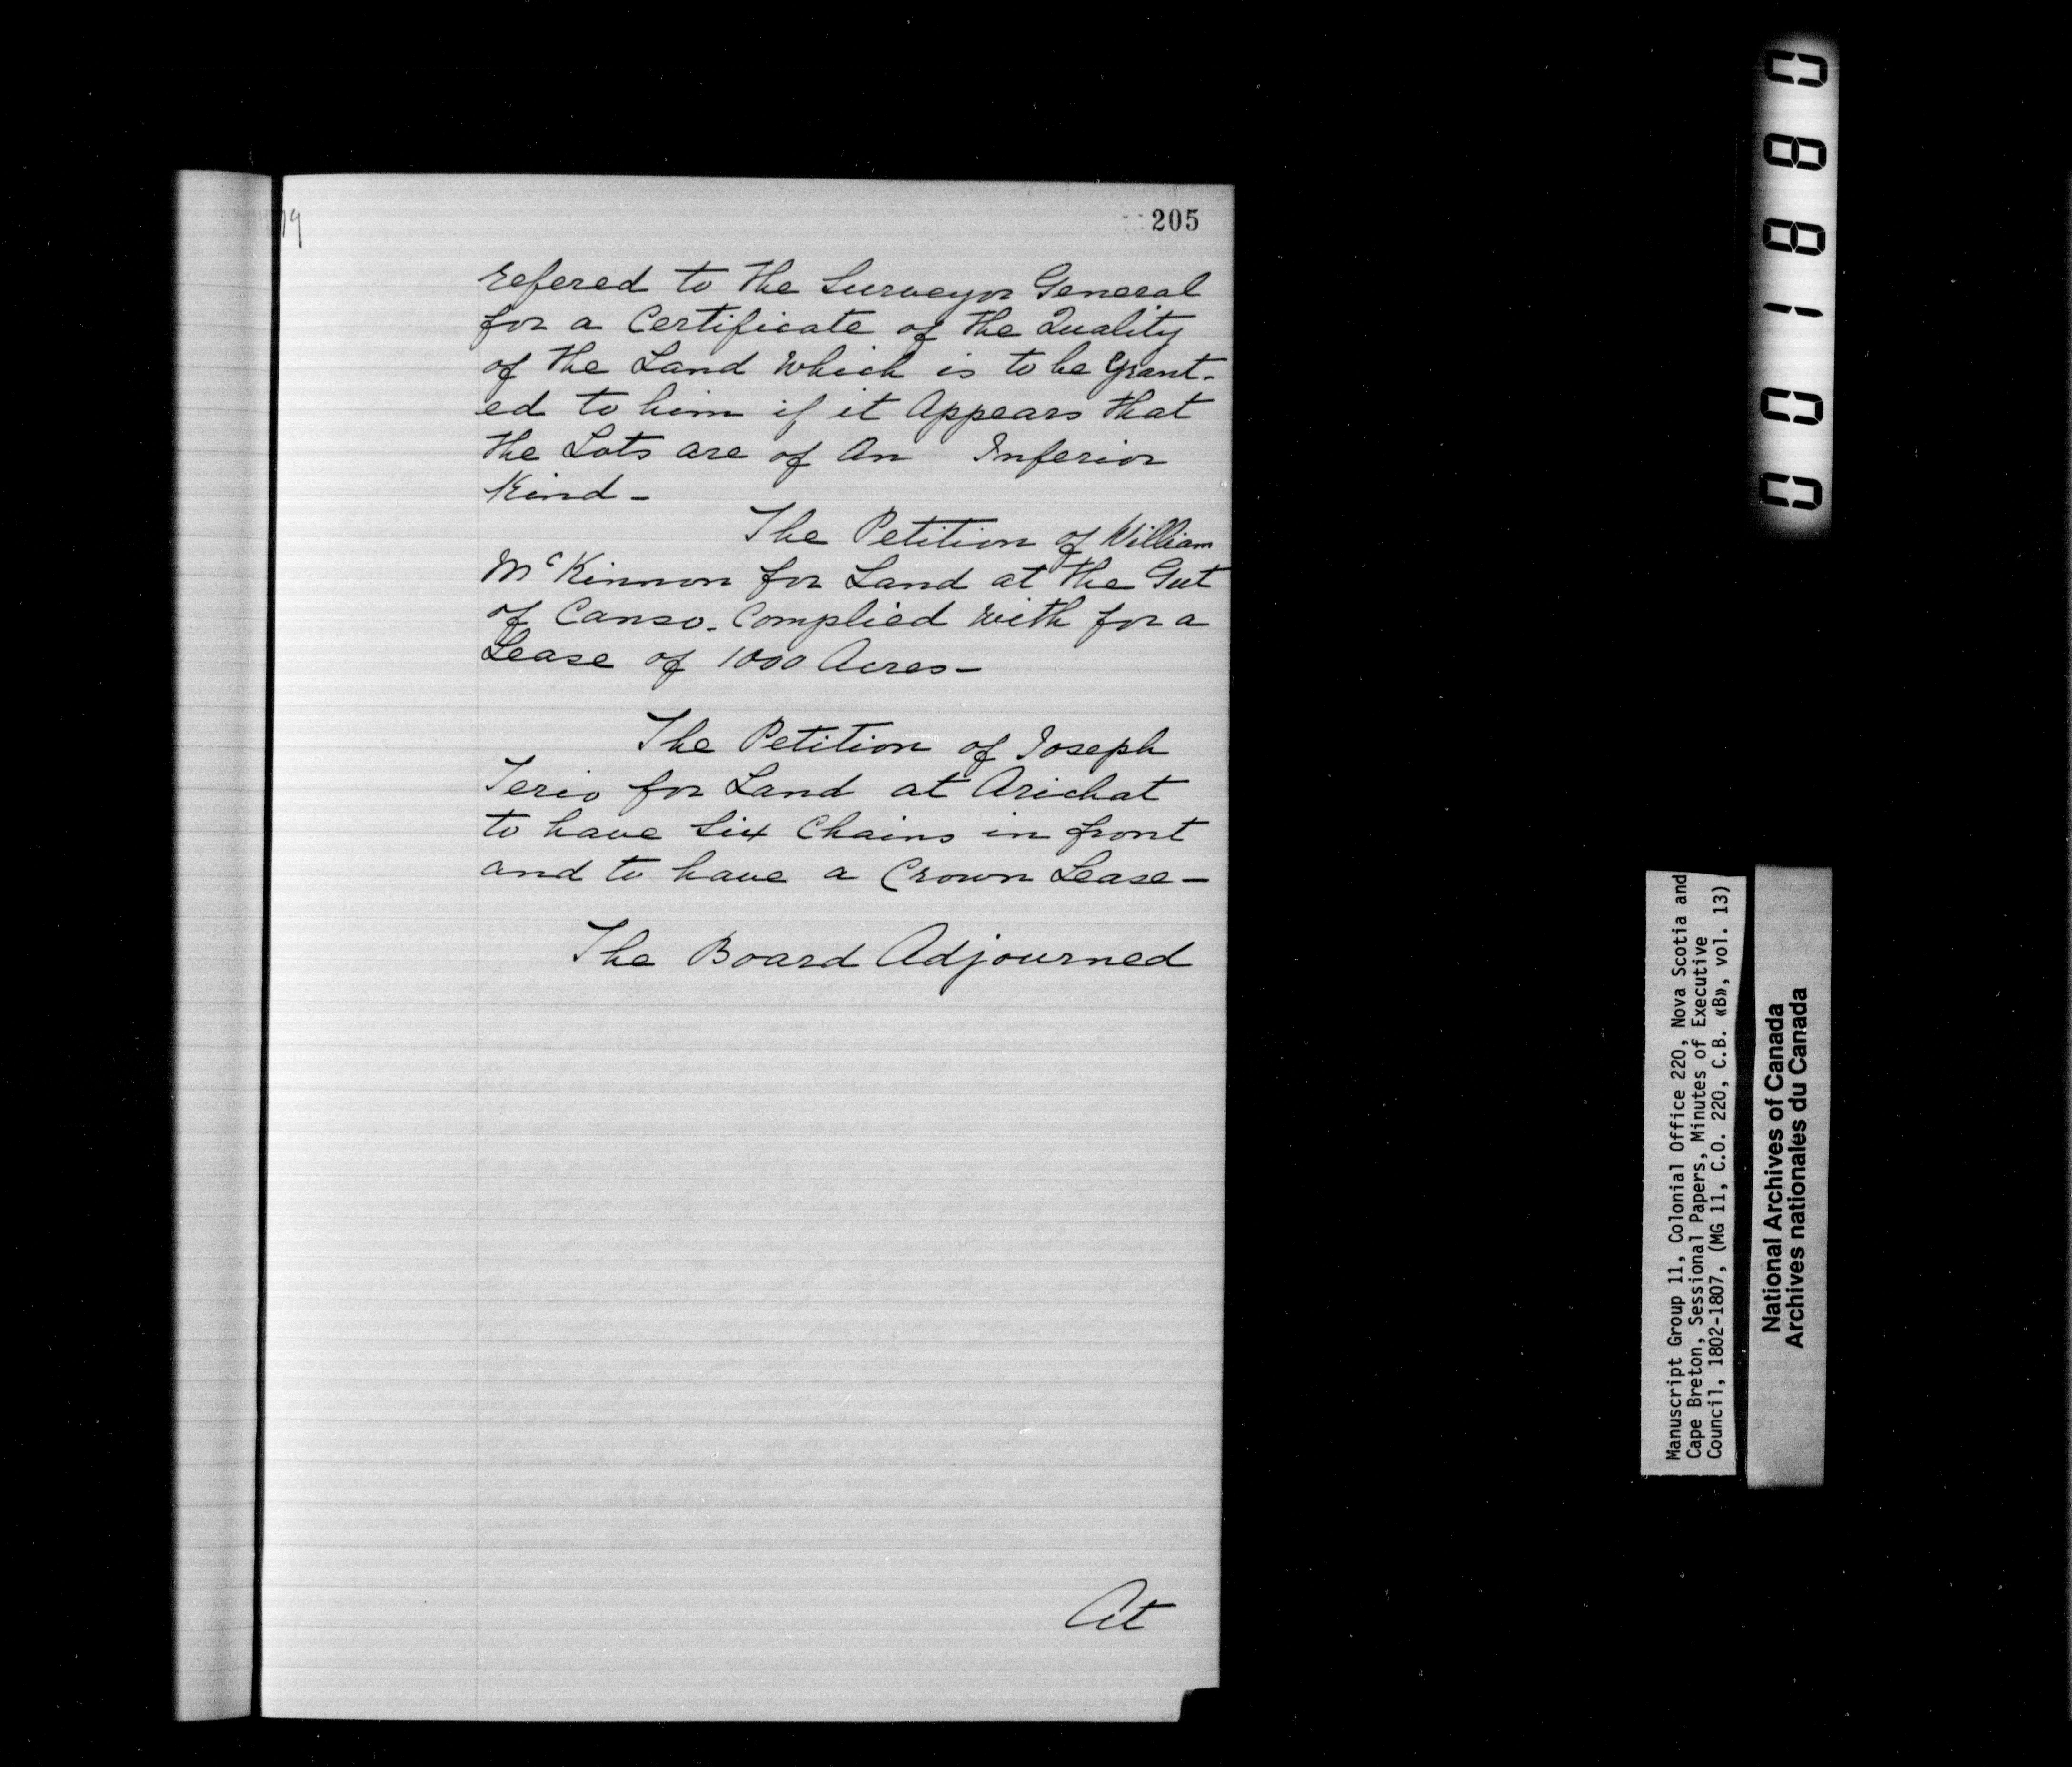 205
refered to the Surveyor General
for a Certificate of the Quality
of the Land which is to be Grant-
ed to him if it Appears that
the Lots are of An Inferior
Kind -
The Petition of William
McKinnon for Land at the Gut
of Canso. Complied with for a
Lease of 1000 Acres -
The Petition of Joseph
Terio for Land at Arichat
to have Six Chains in front
and to have a Crown Lease -
The Board Adjourned
At
001880
Manuscript Group 11, Colonial Office 220, Nova Scotia and
Cape Breton, Sessional Papers, Minutes of Executive
Council, 1802-1807, (MG 11, C.O. 220, C.B. «B», vol. 13)
National Archives of Canada
Archives nationales du Canada